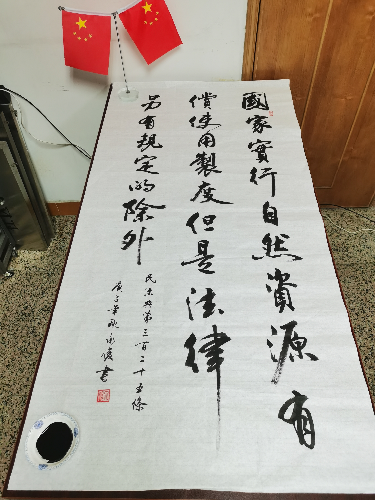 國家實行自然資源有
償使用製度但是法律
另有規定的除外
民法典第三百二十五條
庚子年秋永俊書